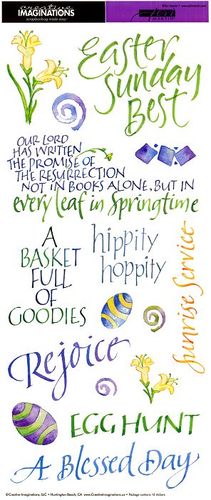 creative
IMAGINATIONS
Easter
Sunday
Best
OUR LORD
HAS WRITTEN
THE PROMISE OF
THE RESURRECTION
NOT IN BOOKS ALONE, BUT IN
every leaf in Springtime
A
BASKET
FULL
OF
GOODIES
hippity
hoppity
Sunrise Service
Rejoice
EGG HUNT
A Blessed Day